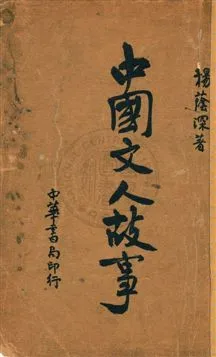 楊蔭深著
中國文人故事
中華書局印行